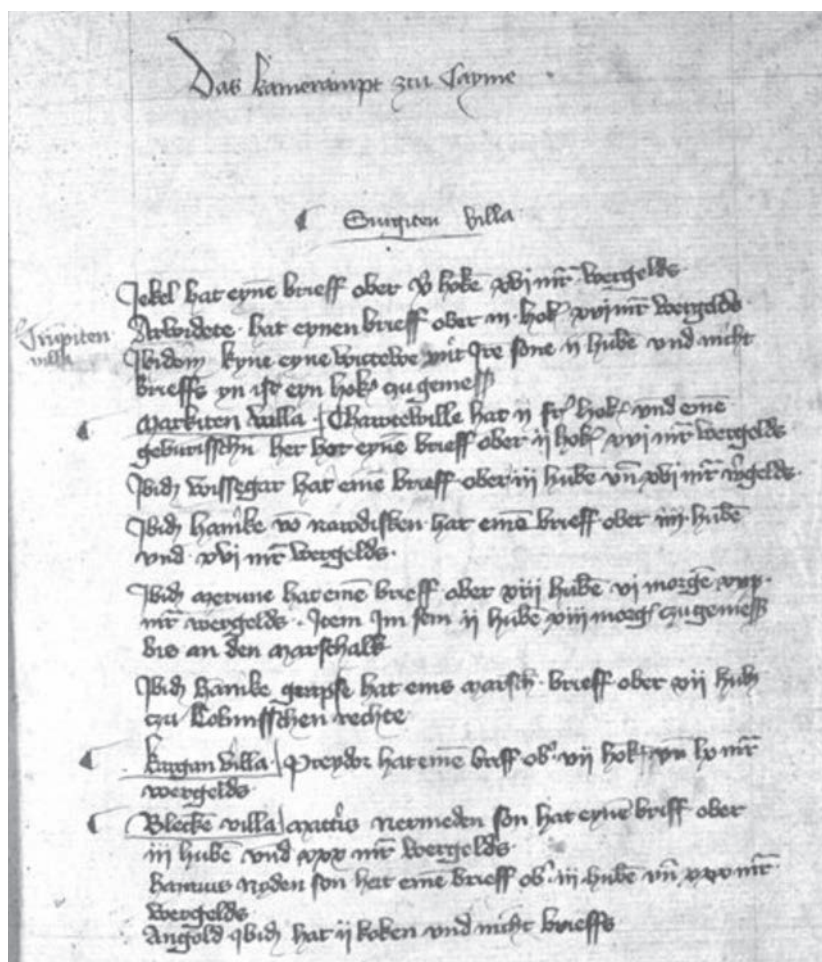 Das kamerampt zcu Cayme
Surgiten villa
Jekel hat eyne brieff ober v hokē xvi mr̄ wergelds
Arwidete hat eynen brieff ober iii hok xvi mr̄ wergelds
Trupiten
villa
Ibidem kyne eyne wittewe mit Ire sone ii hubē vnd nicht
brieffs yn ist eyn hok zcugemess
Markiten villa Thawtewille hat ii hok vnd emē
geburisschn her hot eynē brieff ober ii hok xvi mr̄ wergelds
Ibidē wissegar hat emē brieff ober iii hubē vn̄ xvi mr̄ wgelds
Ibidē hanike vō nawdisken hat emē brieff ober iiii hubē
vnd xvi mr̄ wergelds
Ibidē merune hat emē brieff ober xiii hubē vi morgē xxx
mr̄ wergelds Item Im sem ii hubē viii morg zcugemess
bis an den marschalk
Ibidē hanike hat eins marsch brieff ober xii hub
czu kolmisschen rechte
kurgan villa Preydor hat emē briff ob vii hok lx mr̄
wergelds
Bleckē villa mattis nermedin son hat eynē briff ober
iii hubē vnd xxx mr̄ wergelds
hannus nyden son hat emē brieff ob iii hubē vn̄ xxx mr̄
wergelds
Angold ibidē hat ii hoken vnd nicht brieffs